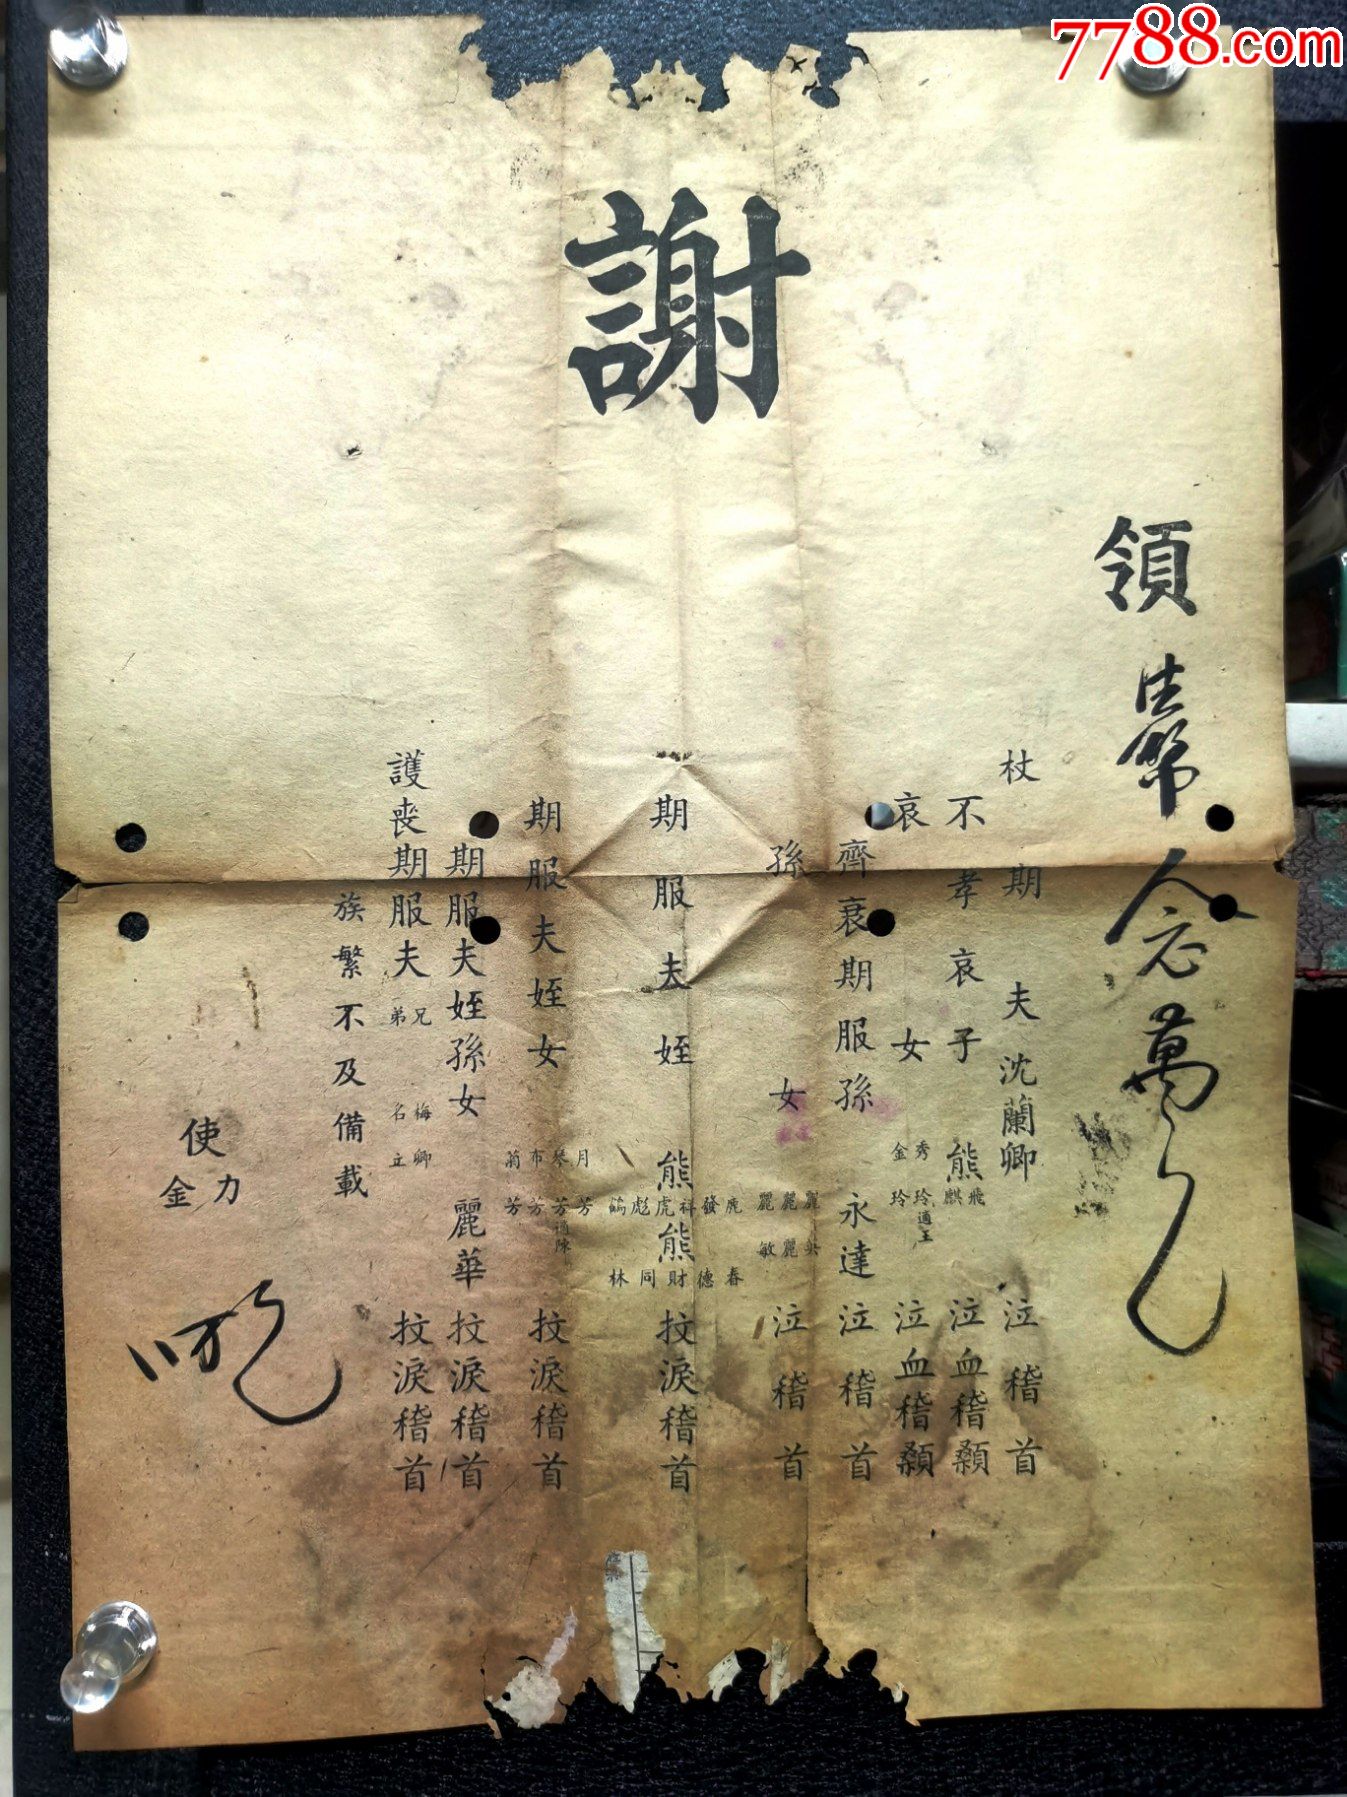 7788.com
謝
領
杖期夫沈蘭卿泣稽首
不孝哀子熊飛麒泣血稽顙
哀女秀玲適王金玲泣血稽顙
齊衰期服孫永達泣稽首
孫女麗麗麗敏泣稽首
期服夫姪熊鹿發科虎彪熊春德財同林抆淚稽首
期服夫姪女月芳芳適陳布芳芳抆淚稽首
期服夫姪孫女麗華抆淚稽首
護喪期服夫兄梅卿弟名立抆淚稽首
族繁不及備載
使力金